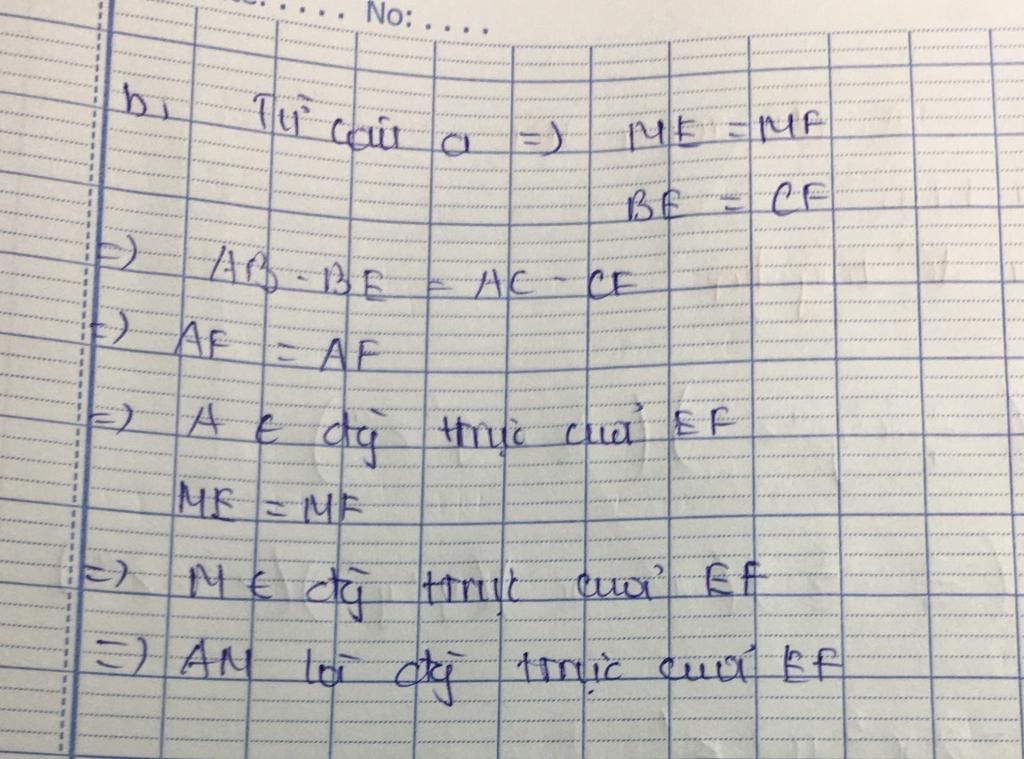 No: ....
b, Từ câu a => ME = MF
BE = CF
=> AB - BE = AC - CF
=> AE = AF
=> A ∈ đg trực của EF
ME = MF
=> M ∈ đg trực của EF
=> AM là đg trực của EF